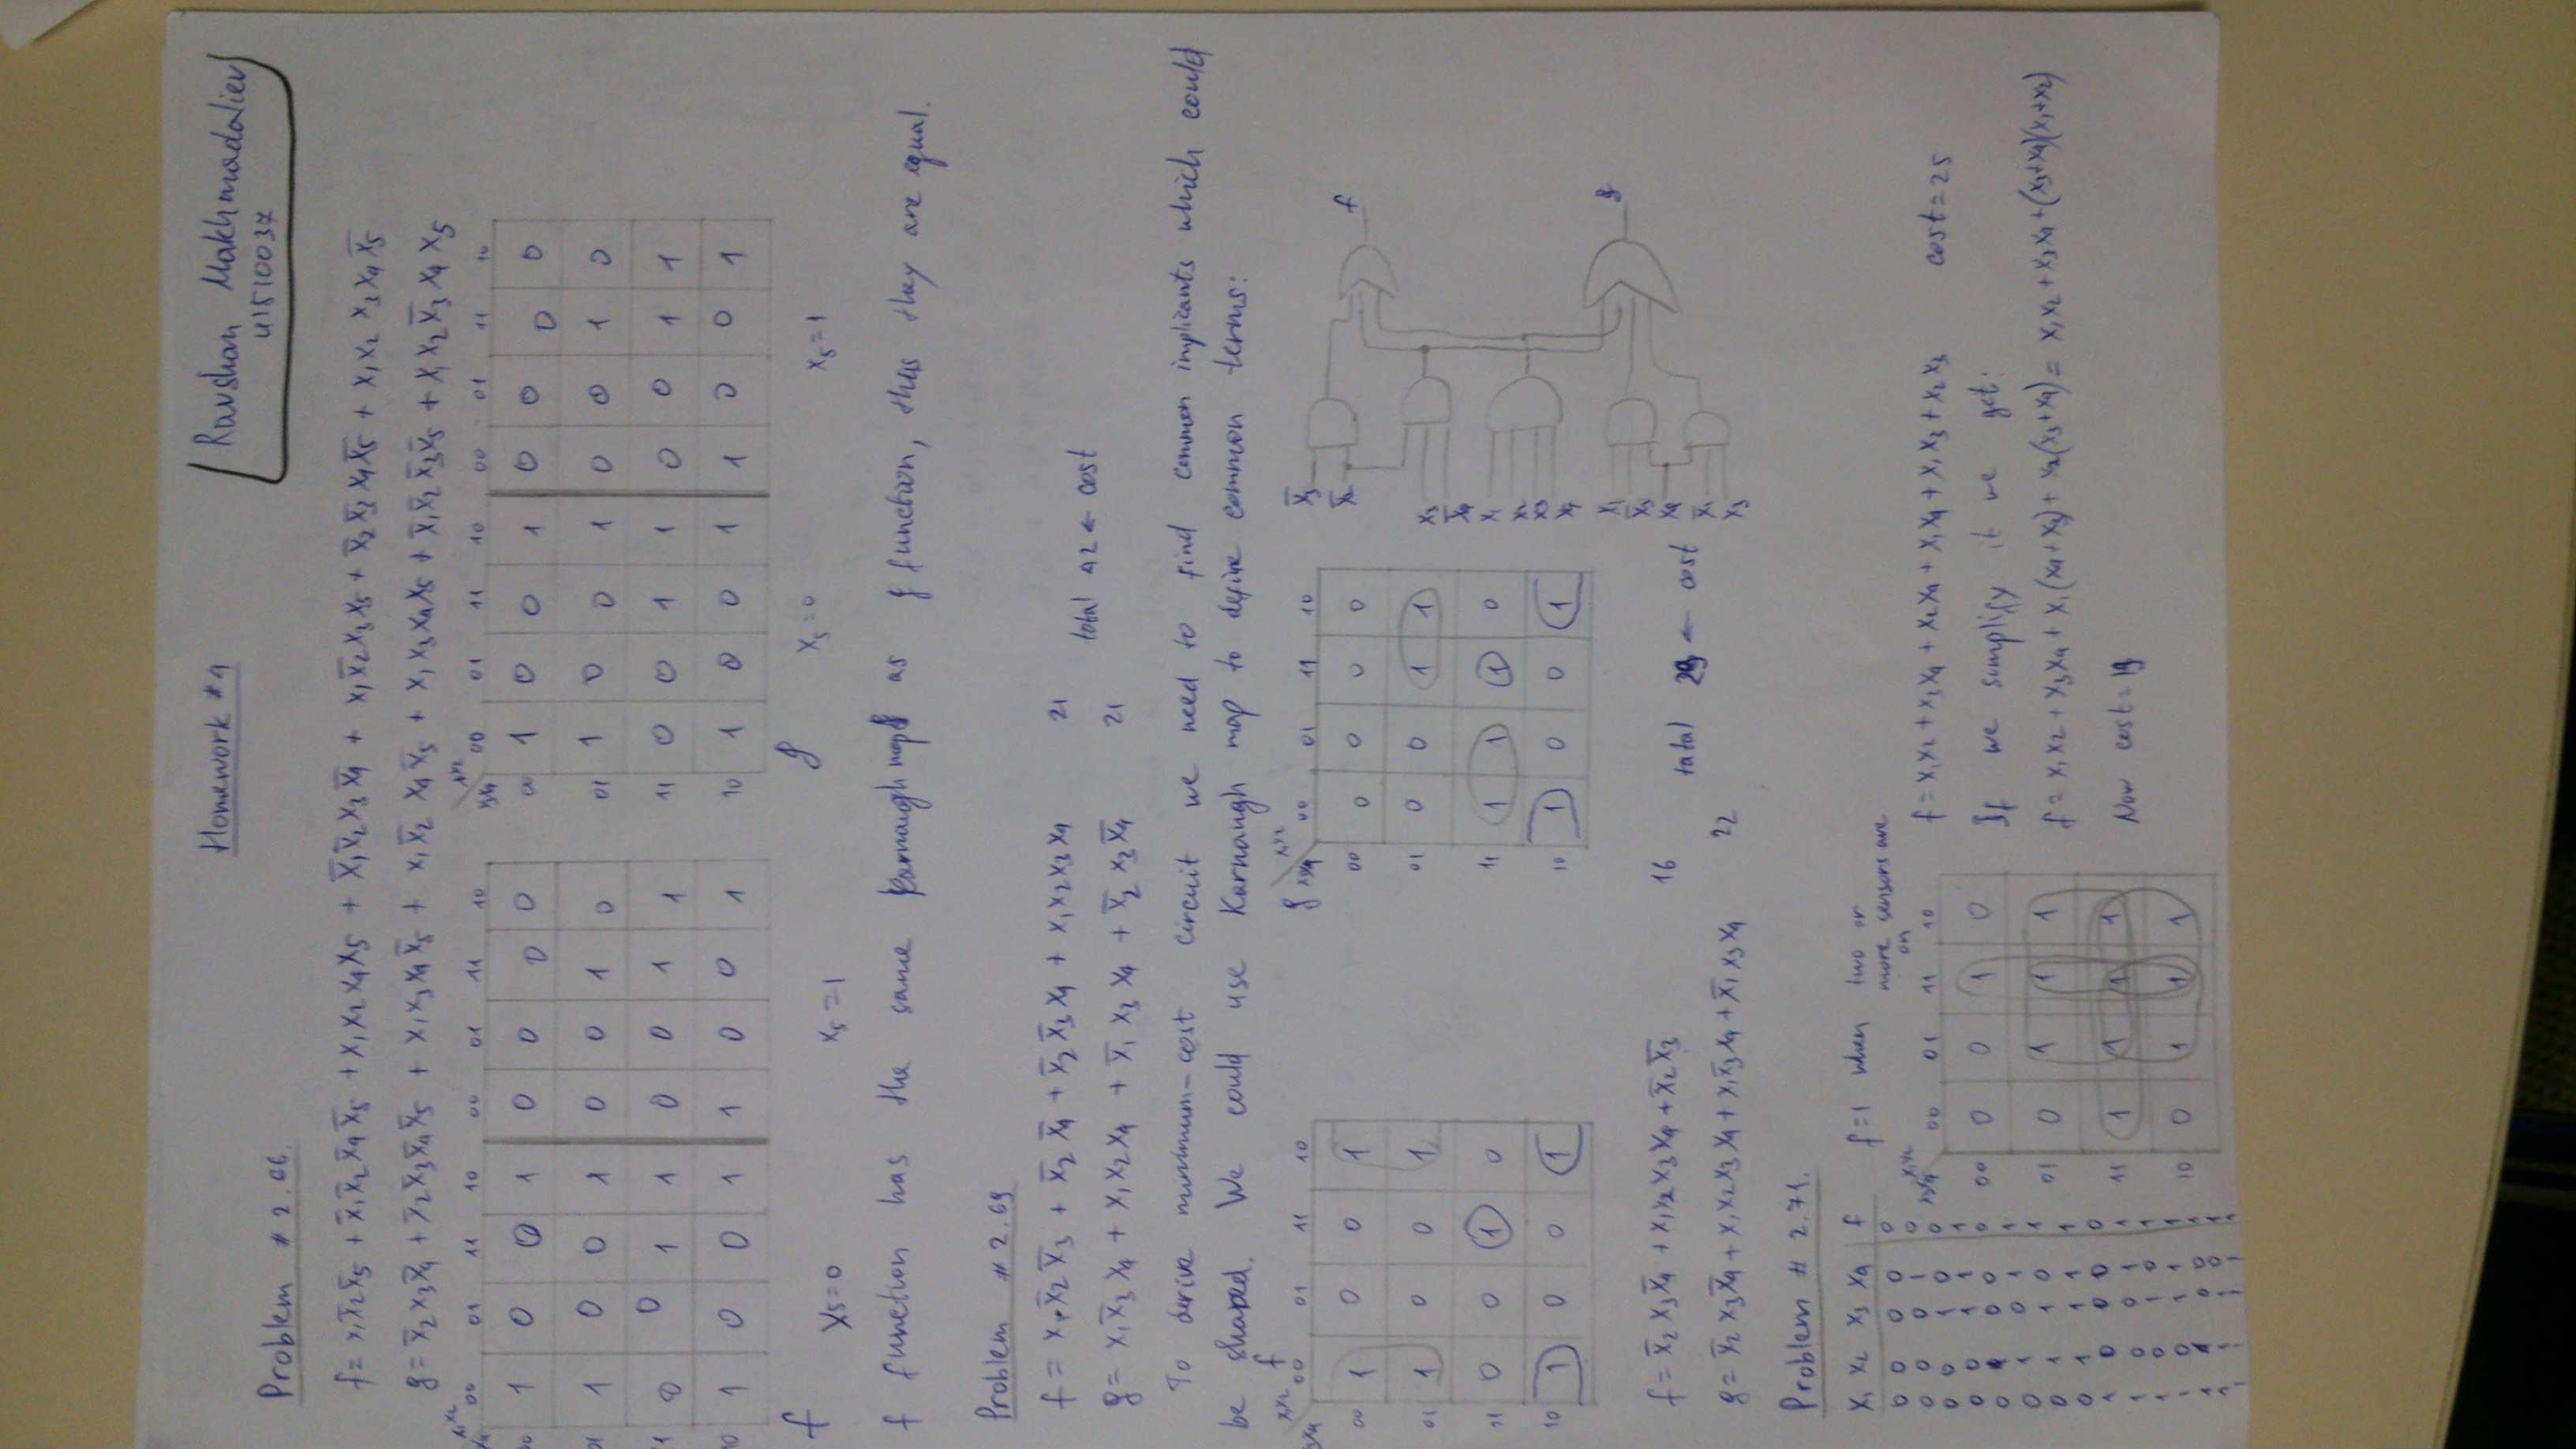 Homework #4
Ravshan Makhmadaliev
U1510037
Problem # 2.66.
f = x₁x̄₂x̄₅ + x̄₁x̄₂x̄₄x̄₅ + x₁x₂x₄x₅ + x̄₁x̄₂x₃x̄₄ + x₁x̄₂x₃x₅ + x̄₂x̄₃x₄x̄₅ + x₁x₂x₃x₄x̄₅
g = x̄₂x₃x̄₄ + x̄₂x̄₃x̄₄x̄₅ + x₁x₃x₄x̄₅ + x₁x̄₂x₄x̄₅ + x₁x₃x₄x₅ + x̄₁x̄₂x̄₃x̄₅ + x₁x₂x̄₃x₄x₅
x₁x₂ 00 01 11 10 00 01 11 10
00 1 0 0 1 0 0 0 0
01 1 0 0 1 0 0 1 0
11 0 0 1 1 0 0 1 1
10 1 0 0 1 1 0 0 1
f x₅=0 x₅=1
x₁x₂
x₃x₄ 00 01 11 10 00 01 11 10
00 1 0 0 1 0 0 0 0
01 1 0 0 1 0 0 1 0
11 0 0 1 1 0 0 1 1
10 1 0 0 1 1 0 0 1
g x₅=0 x₅=1
f function has the same Karnaugh map as g function, thus they are equal.
Problem # 2.69
f = x̄₂x̄₃ + x̄₂x̄₄ + x̄₂x̄₃x₄ + x₁x₂x₃x₄ 21
g = x₁x̄₃x₄ + x₁x₂x₄ + x̄₁x₃x₄ + x̄₂x₃x̄₄ 21
total 42 ← cost
To derive minimum-cost circuit we need to find common implicants which could
be shared. We could use Karnaugh map to define common terms:
x₁x₂ f
x₃x₄ 00 01 11 10
00 1 0 0 1
01 1 0 0 1
11 0 0 1 0
10 1 0 0 1
g x₁x₂
x₃x₄ 00 01 11 10
00 0 0 0 0
01 0 0 1 1
11 1 1 1 0
10 1 0 0 1
x̄₃
x̄₂
x₃
x̄₄
x₁
x₂
x₃
x₄
x₁
x̄₃
x₄
x̄₁
x₃
f
g
f = x̄₂x₃x̄₄ + x₁x₂x₃x₄ + x̄₂x̄₃ 16
g = x̄₂x₃x̄₄ + x₁x₂x₃x₄ + x₁x̄₃x₄ + x̄₁x₃x₄ 22
total ← cost
Problem # 2.71.
f=1 when two or
more sensors are
on
x₁ x₂ x₃ x₄ f
0 0 0 0 0
0 0 0 1 0
0 0 1 0 0
0 0 1 1 1
0 1 0 0 0
0 1 0 1 1
0 1 1 0 1
0 1 1 1 1
1 0 0 0 0
1 0 0 1 1
1 0 1 0 1
1 0 1 1 1
1 1 0 0 1
1 1 0 1 1
x₁x₂
x₃x₄ 00 01 11 10
00 0 0 1 0
01 0 1 1 1
11 1 1 1 1
10 0 1 1 1
f = x₁x₂ + x₃x₄ + x₂x₄ + x₁x₄ + x₁x₃ + x₂x₃ cost=25
If we simplify it we get:
f = x₁x₂ + x₃x₄ + x₁(x₄+x₃) + x₂(x₃+x₄) = x₁x₂ + x₃x₄ + (x₃+x₄)(x₁+x₂)
Now cost=19